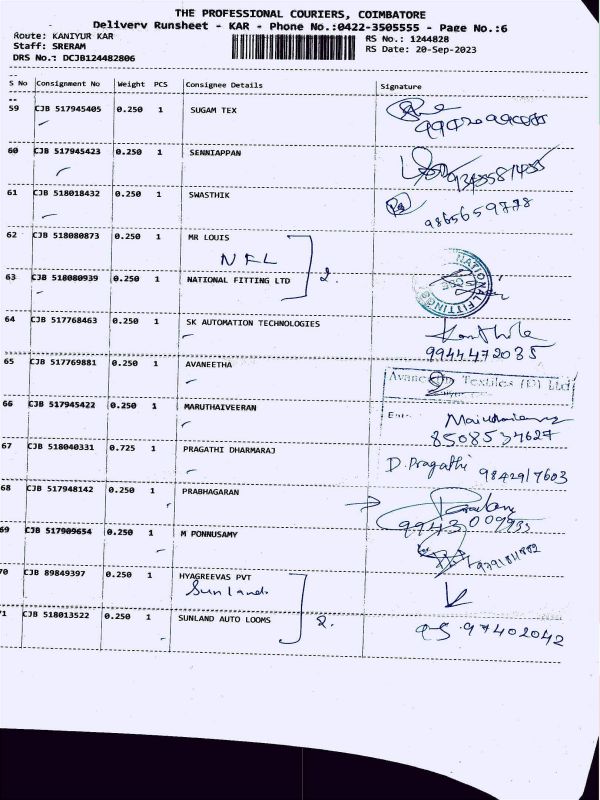 THE PROFESSIONAL COURIERS, COIMBATORE
Delivery Runsheet - KAR - Phone No.:0422-3505555 - Page No.:6
Route: KANIYUR KAR
Staff: SRERAM
DRS No.: DCJB124482806
RS No.: 1244828
RS Date: 20-Sep-2023
S No Consignment No Weight PCS Consignee Details Signature
--
59 CJB 517945405 0.250 1 SUGAM TEX
60 CJB 517945423 0.250 1 SENNIAPPAN
61 CJB 518018432 0.250 1 SWASTHIK 9865659778
62 CJB 518080873 0.250 1 MR LOUIS
NFL 2.
63 CJB 518080939 0.250 1 NATIONAL FITTING LTD NATIONAL FITTING
64 CJB 517768463 0.250 1 SK AUTOMATION TECHNOLOGIES
9944472035
65 CJB 517769881 0.250 1 AVANEETHA Textiles (P) Ltd
66 CJB 517945422 0.250 1 MARUTHAIVEERAN
8508534627
67 CJB 518040331 0.725 1 PRAGATHI DHARMARAJ D. Pragathi 9842917603
68 CJB 517948142 0.250 1 PRABHAGARAN
69 CJB 517909654 0.250 1 M PONNUSAMY
70 CJB 89849397 0.250 1 HYAGREEVAS PVT
Sunland
71 CJB 518013522 0.250 1 SUNLAND AUTO LOOMS 2. 97402042